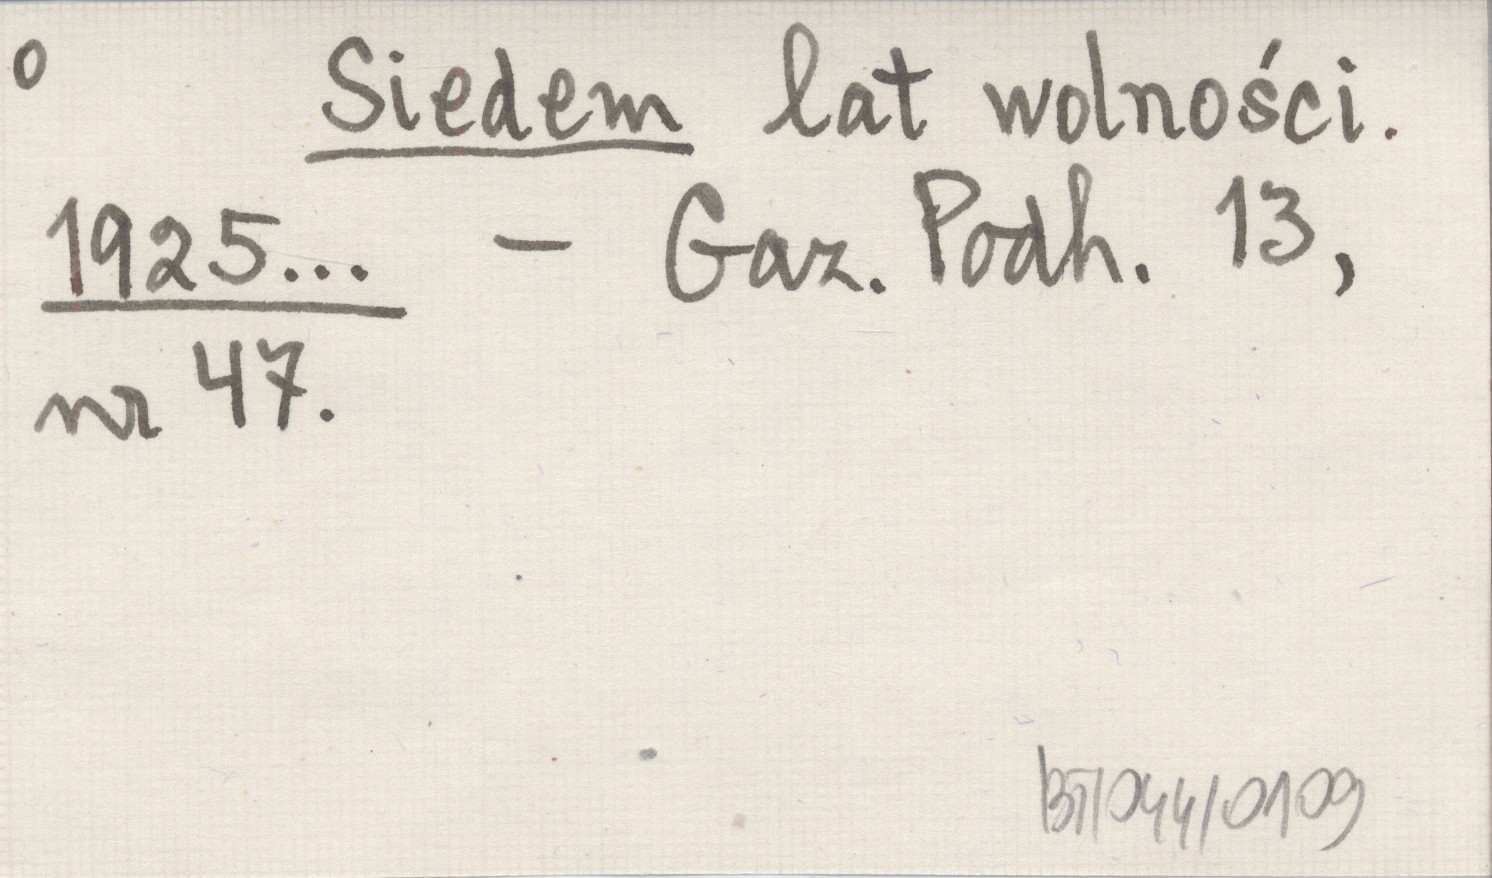 o Siedem lat wolności.
1925... – Gaz. Podh. 13,
nr 47.
BT/044/0109